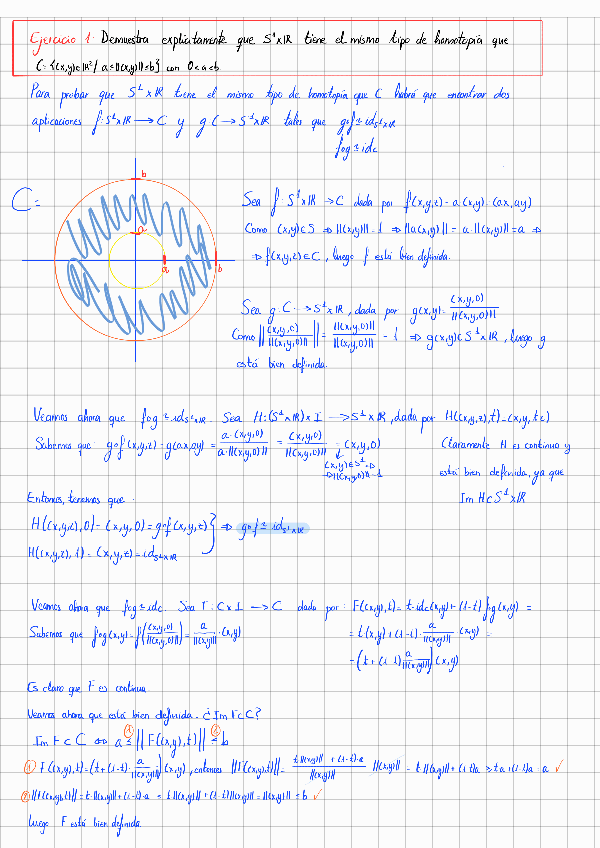 Ejercicio 1: Demuestra explícitamente que S¹xIR tiene el mismo tipo de homotopía que
C={(x,y)∈IR² / a≤||(x,y)||≤b} con 0<a<b
Para probar que S¹xIR tiene el mismo tipo de homotopía que C habrá que encontrar dos
aplicaciones f:S¹xIR → C y g:C → S¹xIR tales que g∘f ≃ id_{S¹xIR}
f∘g ≃ id_C
C=
b
a
a
b
Sea f: S¹xIR → C dada por f(x,y,z) = a(x,y) = (ax,ay)
Como (x,y)∈S ⇒ ||(x,y)|| = 1 ⇒ ||a(x,y)|| = a·||(x,y)|| = a ⇒
⇒ f(x,y,z)∈C, luego f está bien definida.
Sea g: C → S¹xIR, dada por g(x,y) = (x,y,0)/||(x,y,0)||
Como ||(x,y,0)/||(x,y,0)|||| = ||(x,y,0)||/||(x,y,0)|| = 1 ⇒ g(x,y)∈S¹xIR, luego g
está bien definida.
Veamos ahora que f∘g ≃ id_{S¹xIR}. Sea H:(S¹xIR)xI → S¹xIR, dada por H((x,y,z),t) = (x,y,tz)
Sabemos que: g∘f(x,y,z) = g(ax,ay) = a·(x,y,0)/a·||(x,y,0)|| = (x,y,0)/||(x,y,0)|| = (x,y,0)
(x,y)∈S¹ ⇒
⇒ ||(x,y,0)|| = 1
Claramente H es continua y
está bien definida, ya que
Im H⊂S¹xIR
Entonces, tenemos que:
H((x,y,z),0) = (x,y,0) = g∘f(x,y,z)
H((x,y,z),1) = (x,y,z) = id_{S¹xIR}
} ⇒ g∘f ≃ id_{S¹xIR}
Veamos ahora que f∘g ≃ id_C. Sea F: CxI → C dada por: F((x,y),t) = t·id_C(x,y) + (1-t) f∘g(x,y) =
Sabemos que f∘g(x,y) = f((x,y,0)/||(x,y,0)||) = a/||(x,y)||·(x,y)
= t(x,y) + (1-t)·a/||(x,y)||·(x,y) =
= (t + (1-t) a/||(x,y)||)(x,y)
Es claro que F es continua
Veamos ahora que está bien definida. ¿Im F⊂C?
Im F⊂C ⇔ a ≤① ||F((x,y),t)|| ≤② b
① F((x,y),t) = (t + (1-t)·a/||(x,y)||)(x,y), entonces ||F((x,y),t)|| = t||(x,y)|| + (1-t)·a/||(x,y)|| ||(x,y)|| = t||(x,y)|| + (1-t)a ≥ ta + (1-t)a = a ✓
② ||F((x,y),t)|| = t·||(x,y)|| + (1-t)·a ≤ t||(x,y)|| + (1-t)||(x,y)|| = ||(x,y)|| ≤ b ✓
Luego F está bien definida.